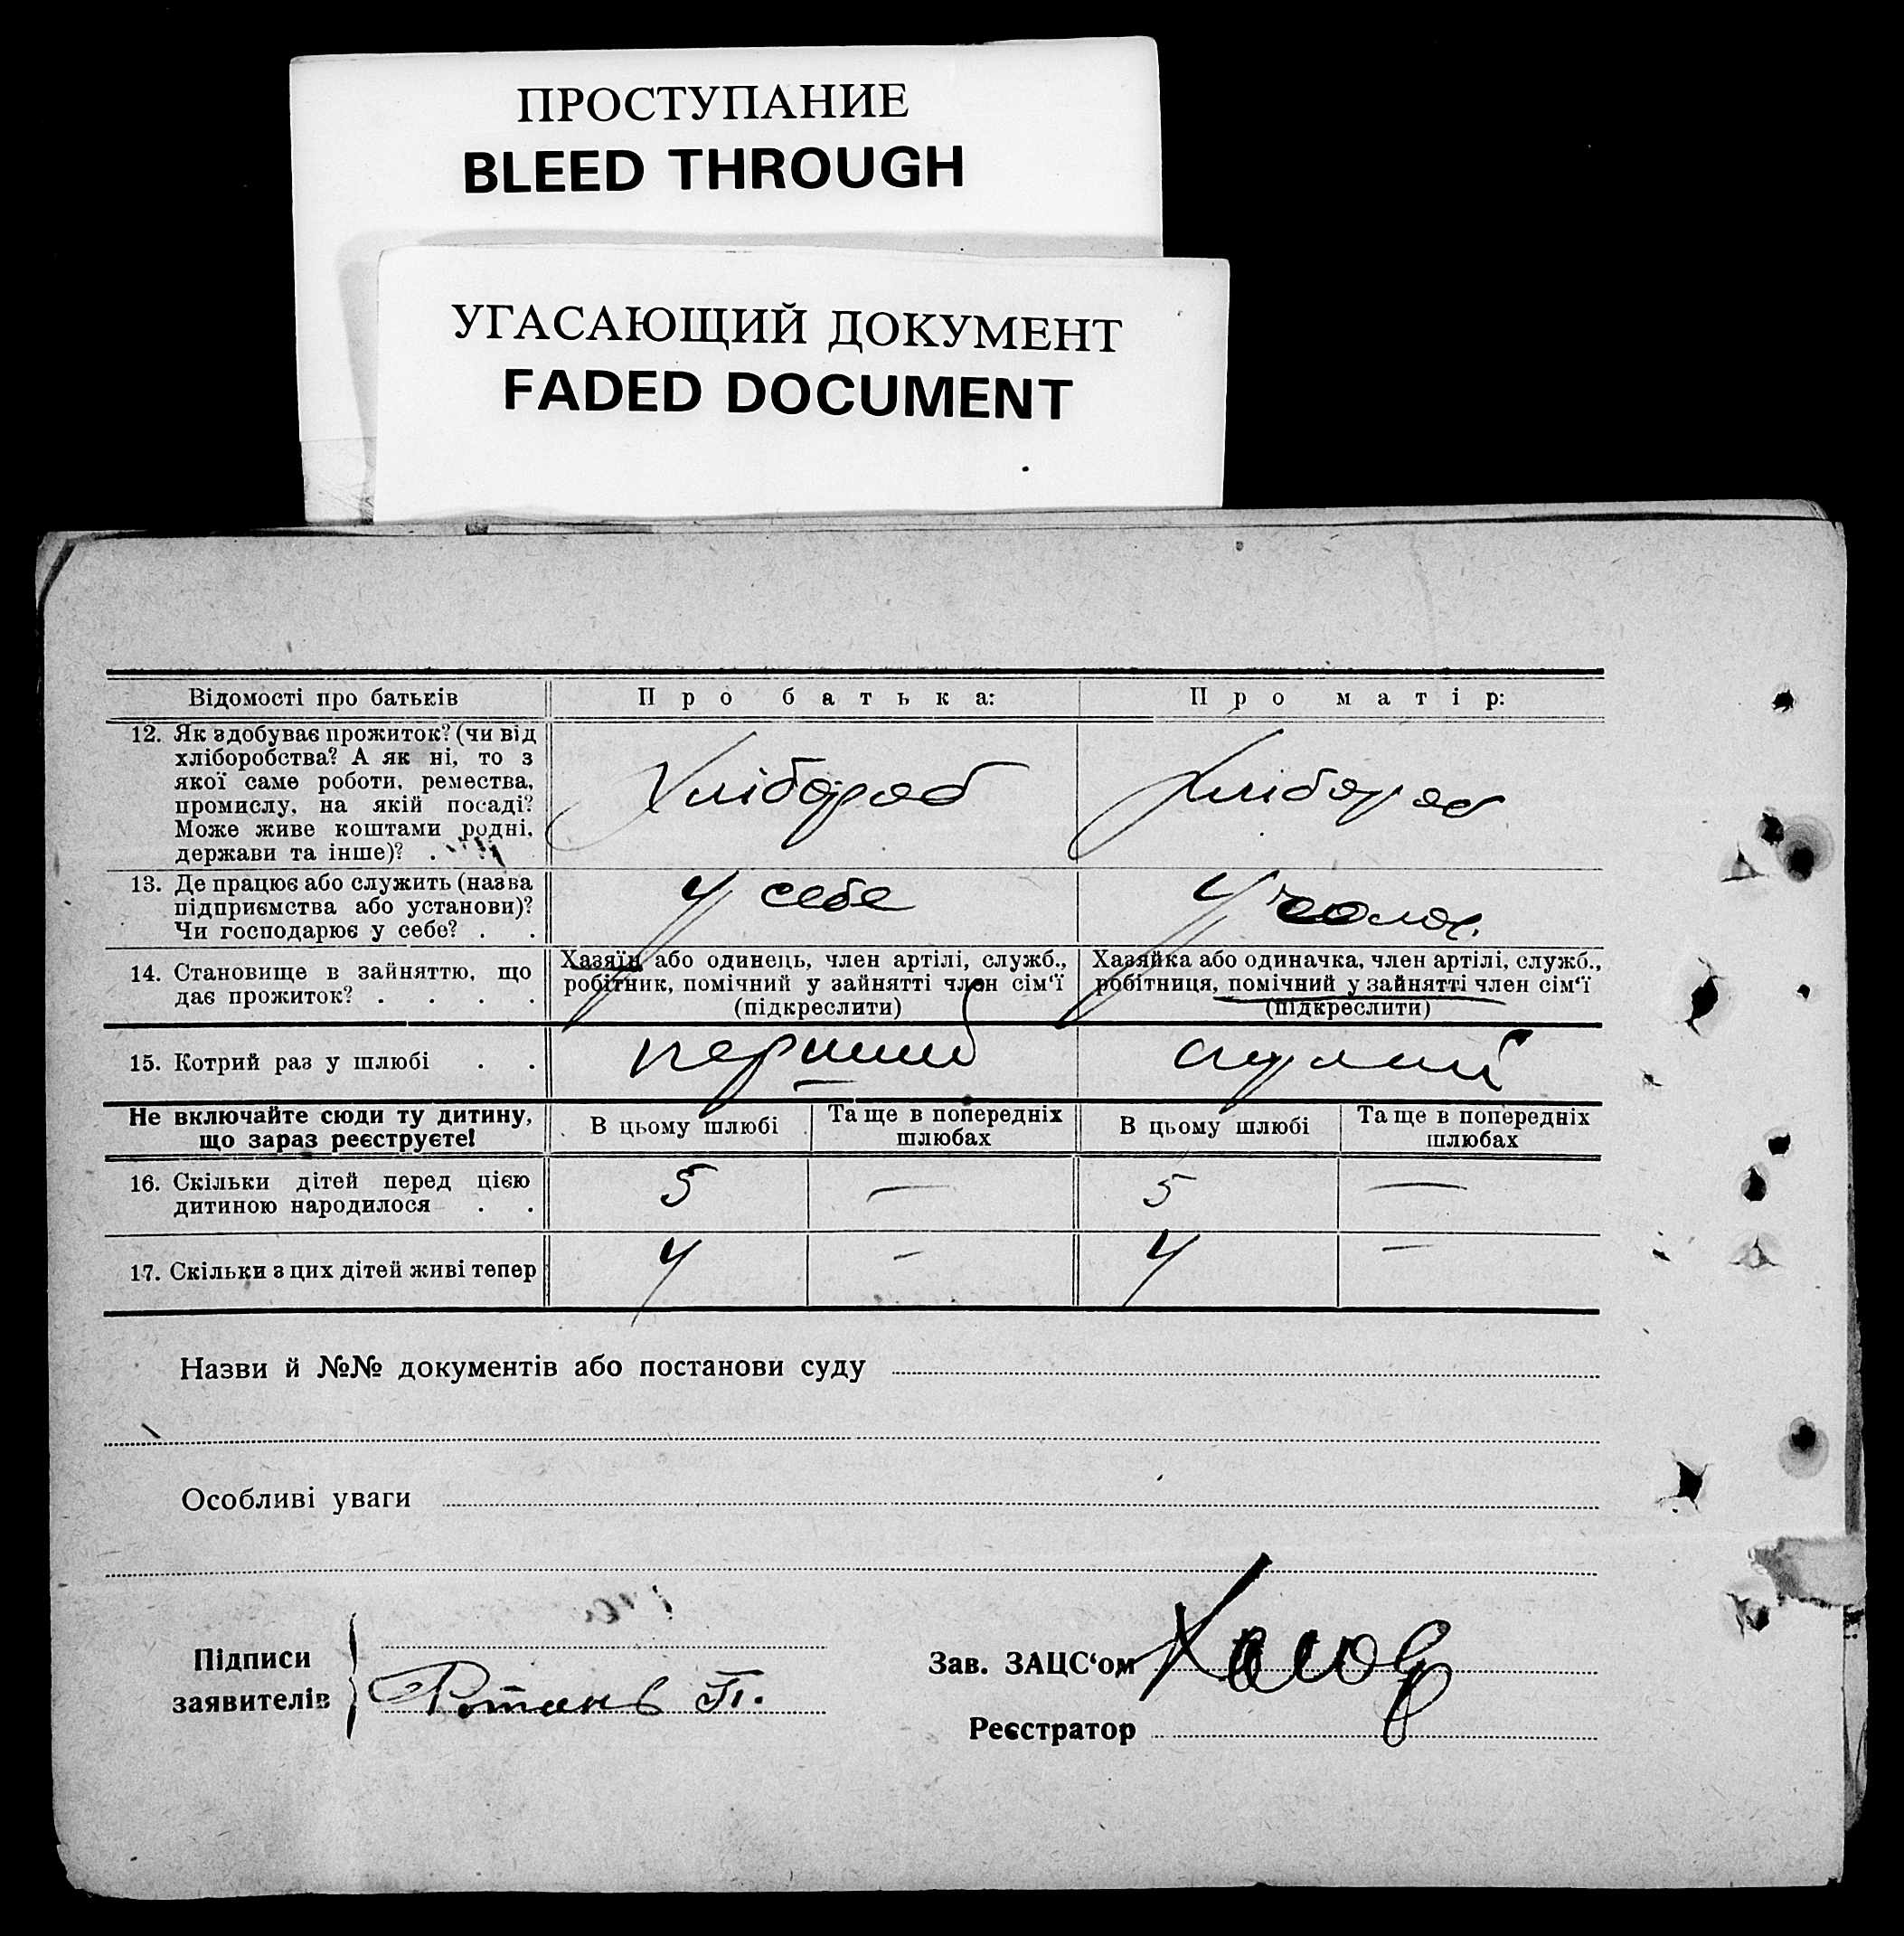 ПРОСТУПАНИЕ
BLEED THROUGH
УГАСАЮЩИЙ ДОКУМЕНТ
FADED DOCUMENT
Відомості про батьків
Про батька:
Про матір:
12. Як здобуває прожиток? (чи від
хліборобства? А як ні, то з
якої саме роботи, ремества,
промислу, на якій посаді?
Може живе коштами родні,
держави та інше)? .
Хлібороб
Хлібороб
13. Де працює або служить (назва
підприємства або установи)?
Чи господарює у себе? . .
У себе
У
14. Становище в зайняттю, що
дає прожиток? . . . .
Хазяїн або одинець, член артілі, служб.,
робітник, помічний у зайнятті член сім'ї
(підкреслити)
Хазяйка або одиначка, член артілі, служб.,
робітниця, помічний у зайнятті член сім'ї
(підкреслити)
15. Котрий раз у шлюбі . .
перший
Не включайте сюди ту дитину,
що зараз реєструєте!
В цьому шлюбі
Та ще в попередніх
шлюбах
В цьому шлюбі
Та ще в попередніх
шлюбах
16. Скільки дітей перед цією
дитиною народилося . .
5
—
5
—
17. Скільки з цих дітей живі тепер
4
—
4
—
Назви й №№ документів або постанови суду
Особливі уваги
Підписи
заявителів
Ротань П.
Зав. ЗАЦС'ом
Реєстратор